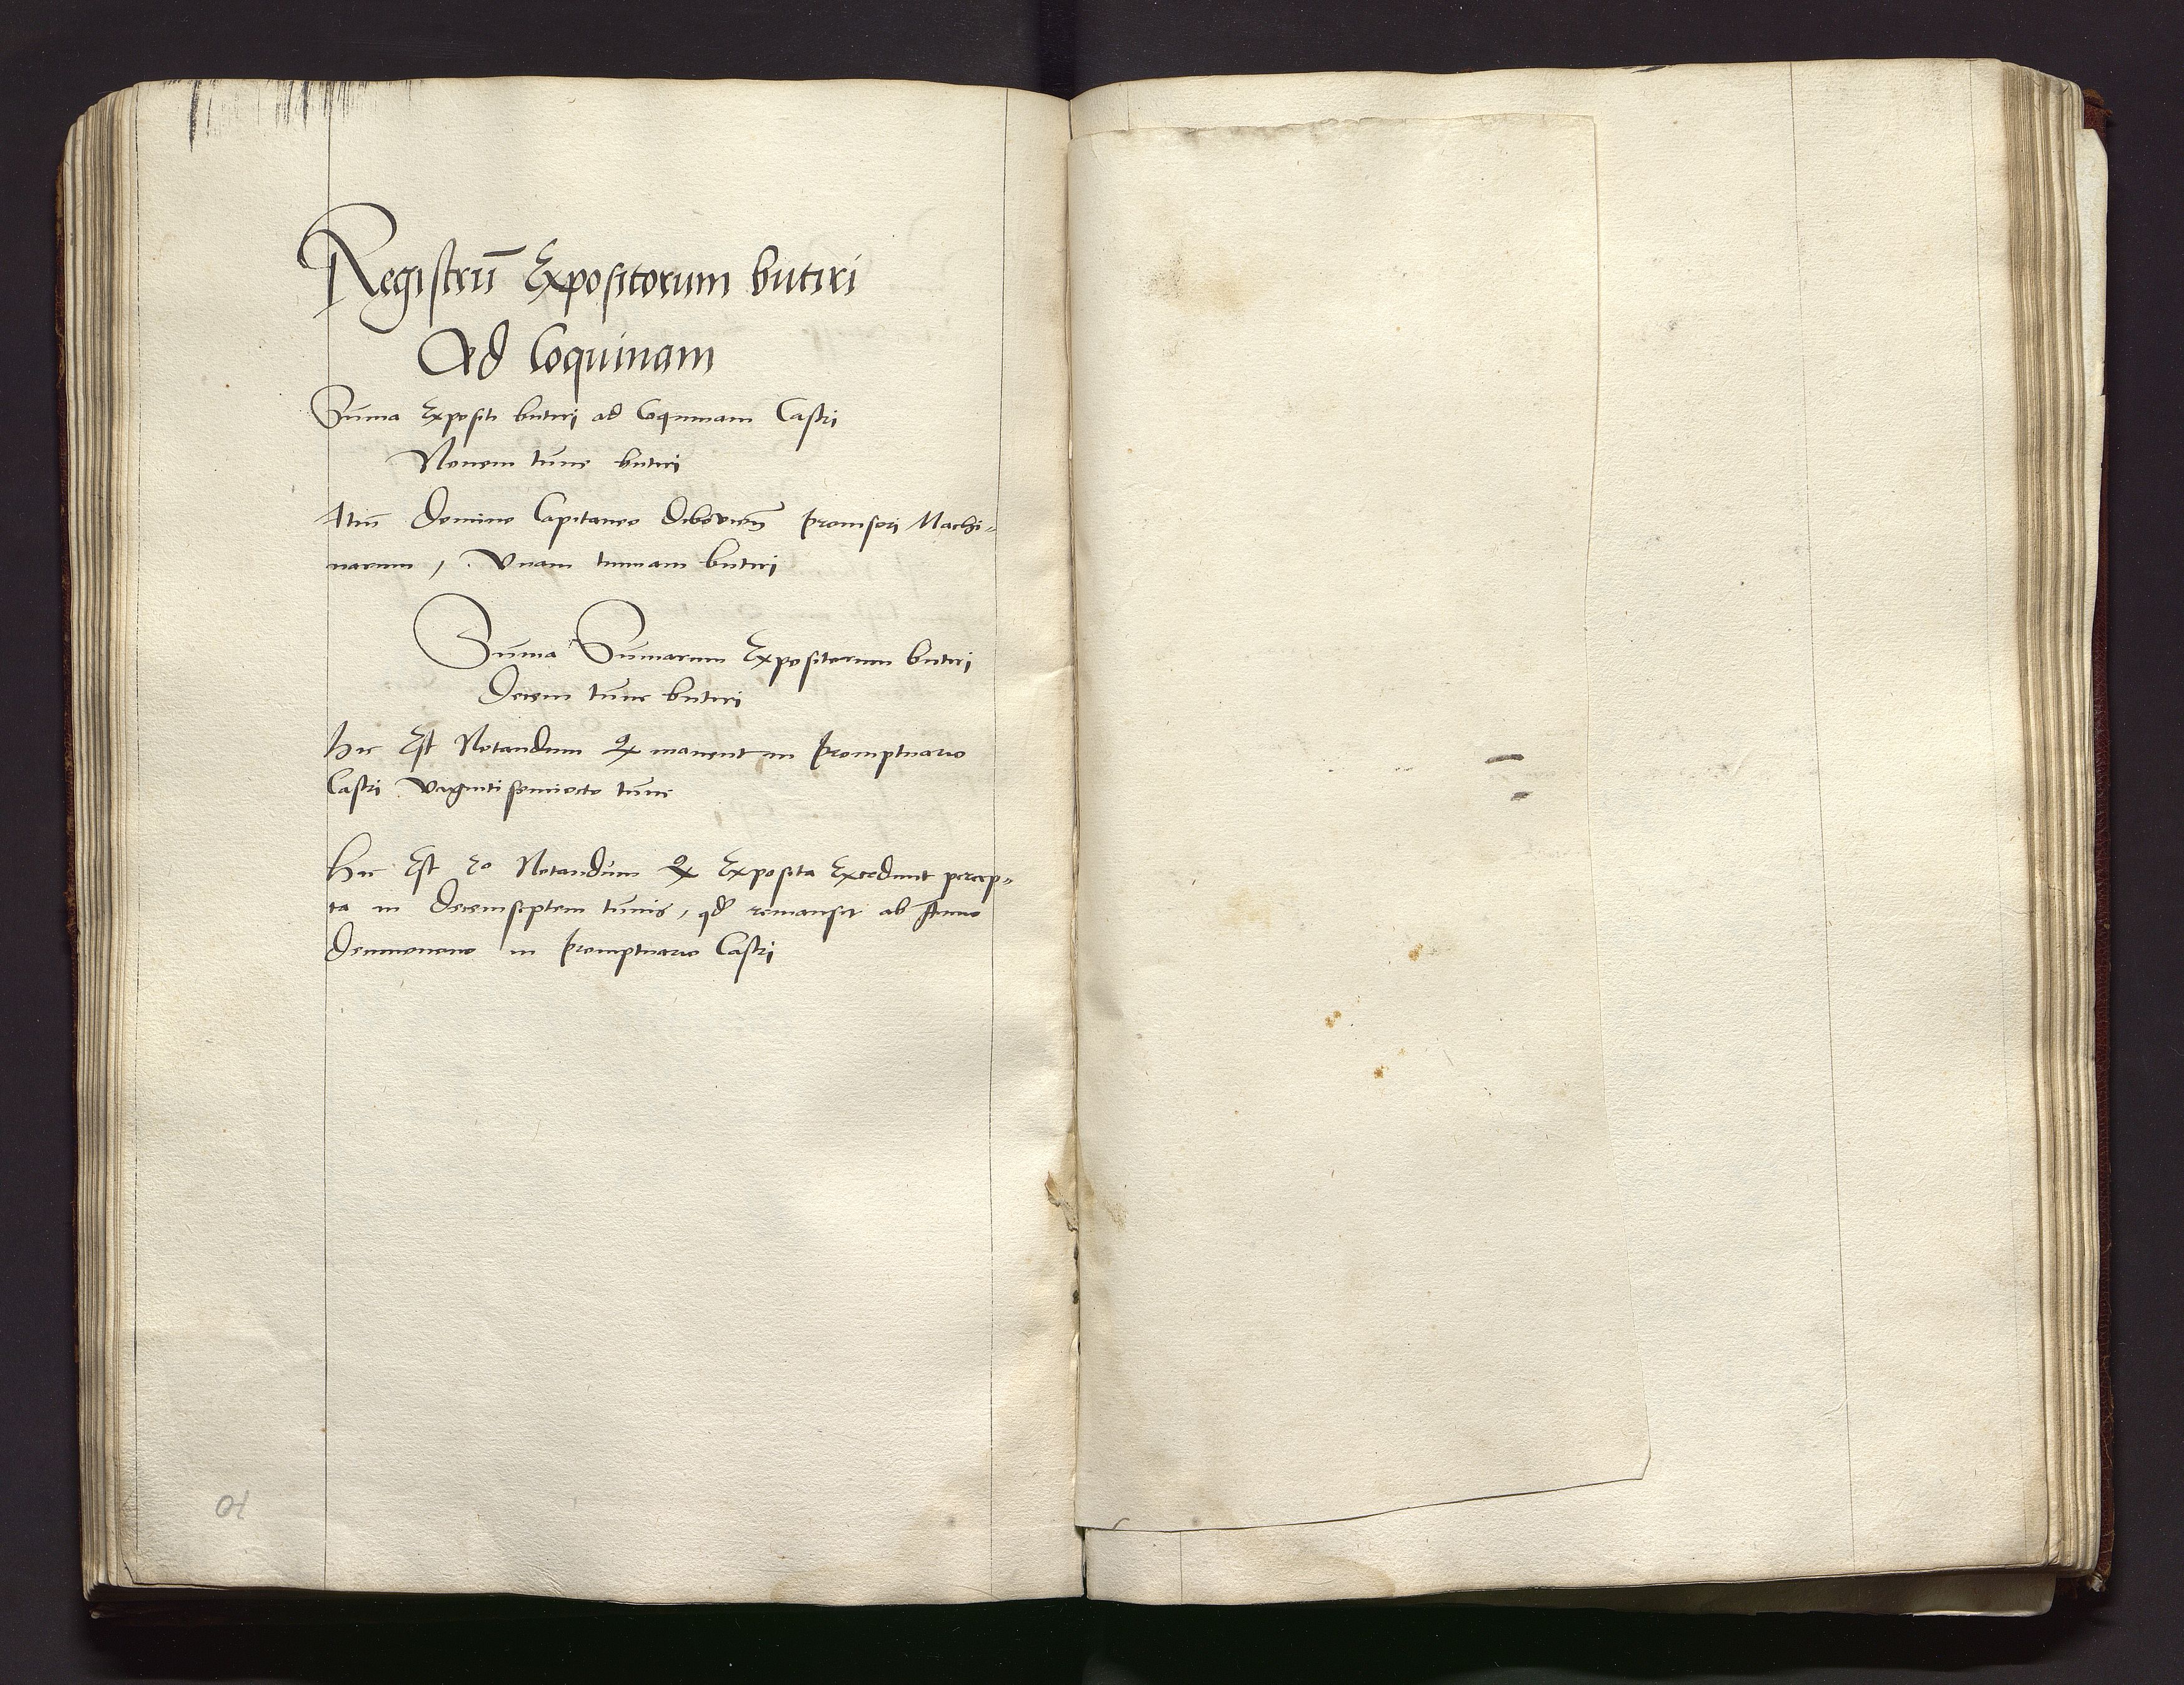 Registrū Expositorum butiri
Ad Coquinam
Sūma Expositi butiri ad Coquinam Castri
Novem tūne butiri
Itm̄ Domino Capitaneo provisori Machi-
narum, Unam tunnam butiri
Sūma Sūmarum Expositorum butiri
Decem tūne butiri
Hic Est Notandum manent in promptuario
Castri viginti tūne
Hic Est Notandum Exposita Excedunt percep-
ta in Decemseptem tūnis, qd remansit ab Anno
in promptuario Castri